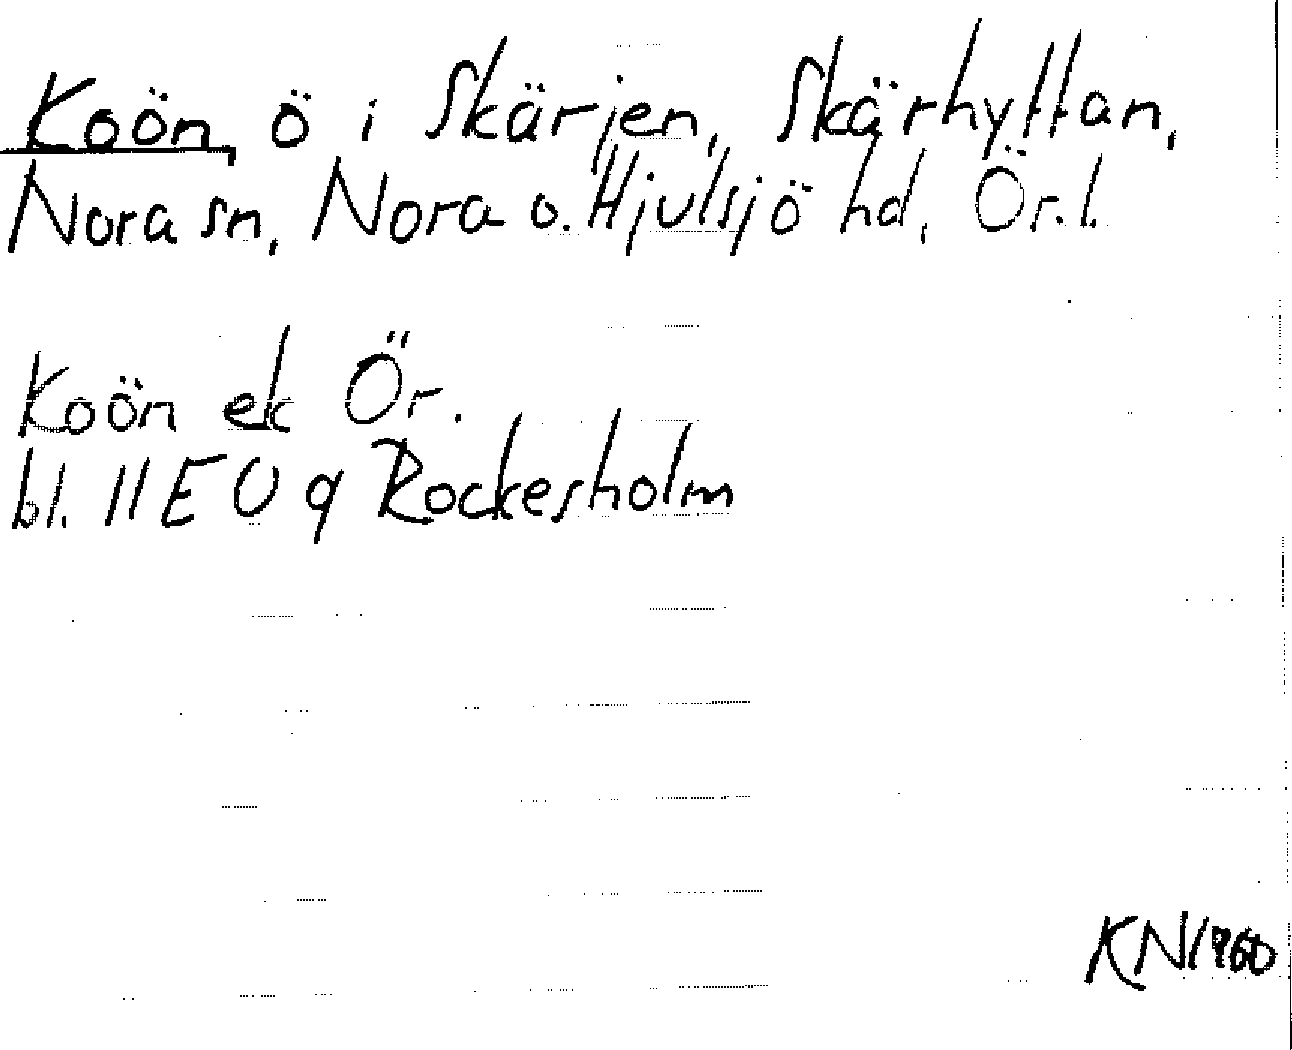 Koön, ö i Skärjen, Skärhyttan,
Nora sn, Nora o. Hjulsjö hd, Ör. l.
Koön ek Ör.
bl. 11 E 0 q Rockesholm
KN 1960